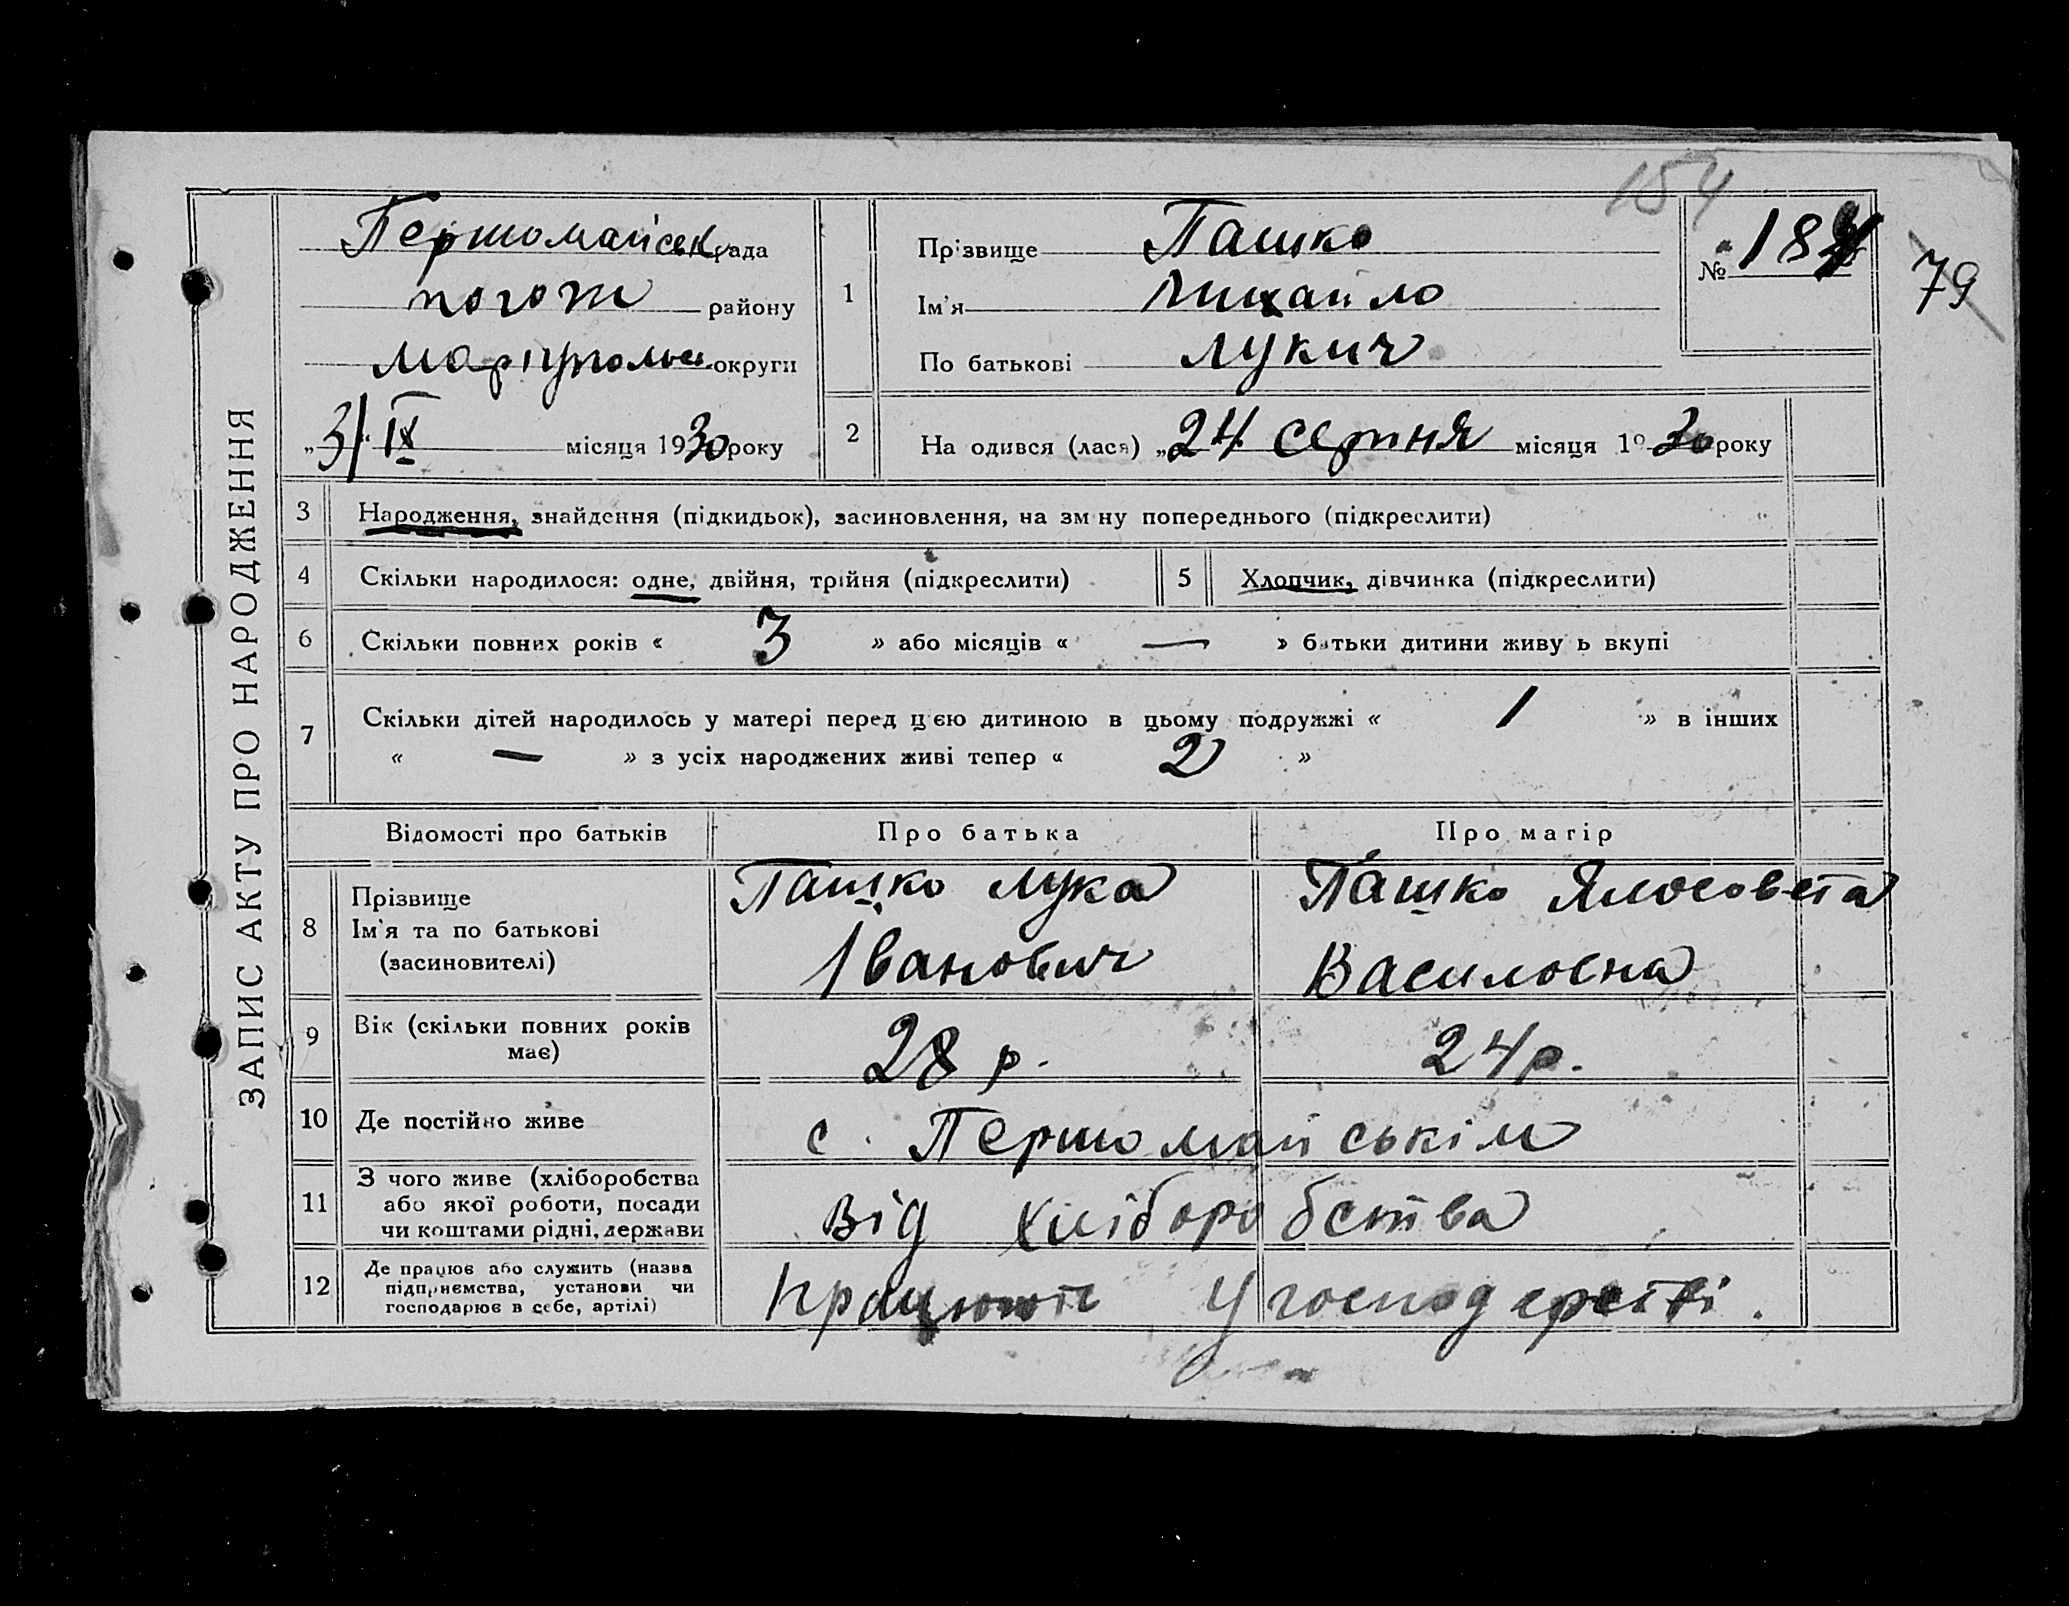 154
ЗАПИС АКТУ ПРО НАРОДЖЕННЯ
Першомайськ рада
району
Маріупольс. округи
„3/" IX місяця 1930 року
1
Прізвище Пашко
Ім'я Михайло
По батькові Лукич
№ 18
79
2 На одився (лася) „24 серпня місяця 19 30 року
3 Народження, знайдення (підкидьок), засиновлення, на зм ну попереднього (підкреслити)
4 Скільки народилося: одне, двійня, трійня (підкреслити)
5 Хлопчик, дівчинка (підкреслити)
6 Скільки повних років « 3 » або місяців « — » батьки дитини живу ь вкупі
7 Скільки дітей народилось у матері перед цією дитиною в цьому подружжі « 1 » в інших
« — » з усіх народжених живі тепер « 2 »
Відомості про батьків Про батька Про матір
8 Прізвище
Ім'я та по батькові
(засиновителі)
Пашко Лука
Іванович
Пашко Ялосовета
Василовна
9 Вік (скільки повних років
має)
28 р. 24 р.
10 Де постійно живе с. Першомайськім
11 З чого живе (хліборобства
або якої роботи, посади
чи коштами рідні, держави
Від хліборобства
12 Де працює або служить (назва
підприємства, установи чи
господарює в себе, артілі)
У господерстві.